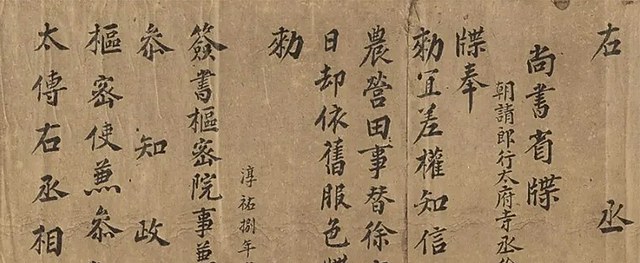 右丞
尚書省牒
朝請郎行太府寺丞徐
牒奉
勑宜差權知信
農營田事替徐
日却依舊服色牒
勑
淳祐捌年
簽書樞密院事兼
叅知政
樞密使兼叅
太傅右丞相